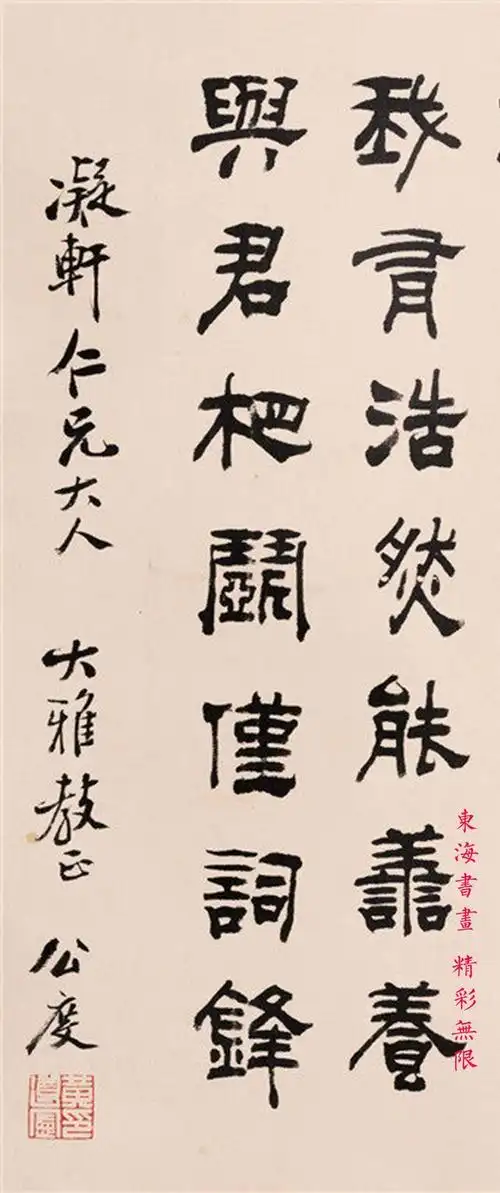 我有浩然能善養
與君杷鬭僅詞鋒
凝軒仁兄大人 大雅教正 公度
東海書畫 精彩無限